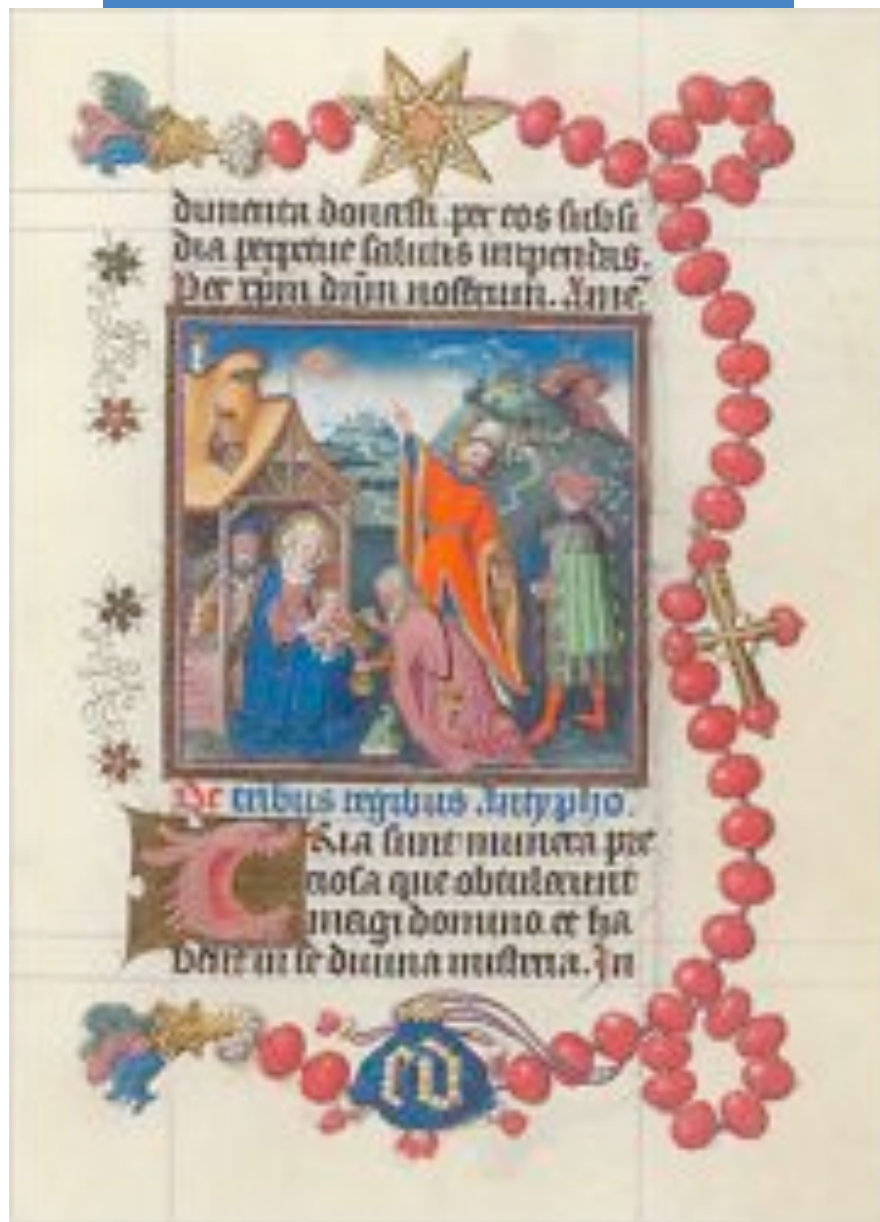 dumenta donasti. per eos subsi
dia perpetue salutis impendas.
Per xpm dnm nostrum. Ame
De tribus regibus Antypho.
Ria sunt munera pre
ciosa que obtulerunt
magi domino et ha
bent in se diuina misteria. In